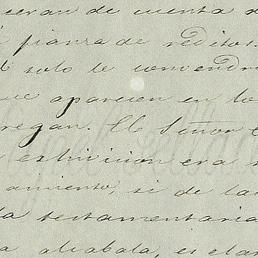 eran de cuenta d
fianza de reditos.
solo le convendr
que aparecen en lo
regan. El Señor
estricion era
amiento, si de la
la testamentaria
a alcabala, es clar